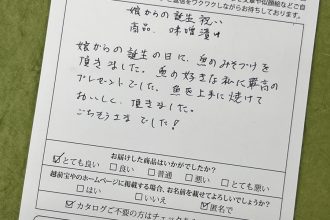 信をワクワクしながらお待ちしております。
娘からの誕生祝い
商品、味噌漬け
娘からの誕生の日に、魚のみそづけを
頂きました。魚の好きな私に最高の
プレゼントでした。魚を上手に焼けて
おいしく頂きました。
ごちそうさまでした!
お届けした商品はいかがでしたか?
☑とても良い □良い □普通 □悪い □とても悪い
越前宝やのホームページに掲載する場合、お名前を載せてよろしいでしょうか?
□はい □いいえ ☑匿名で
☑カタログご不要の方はチェックを